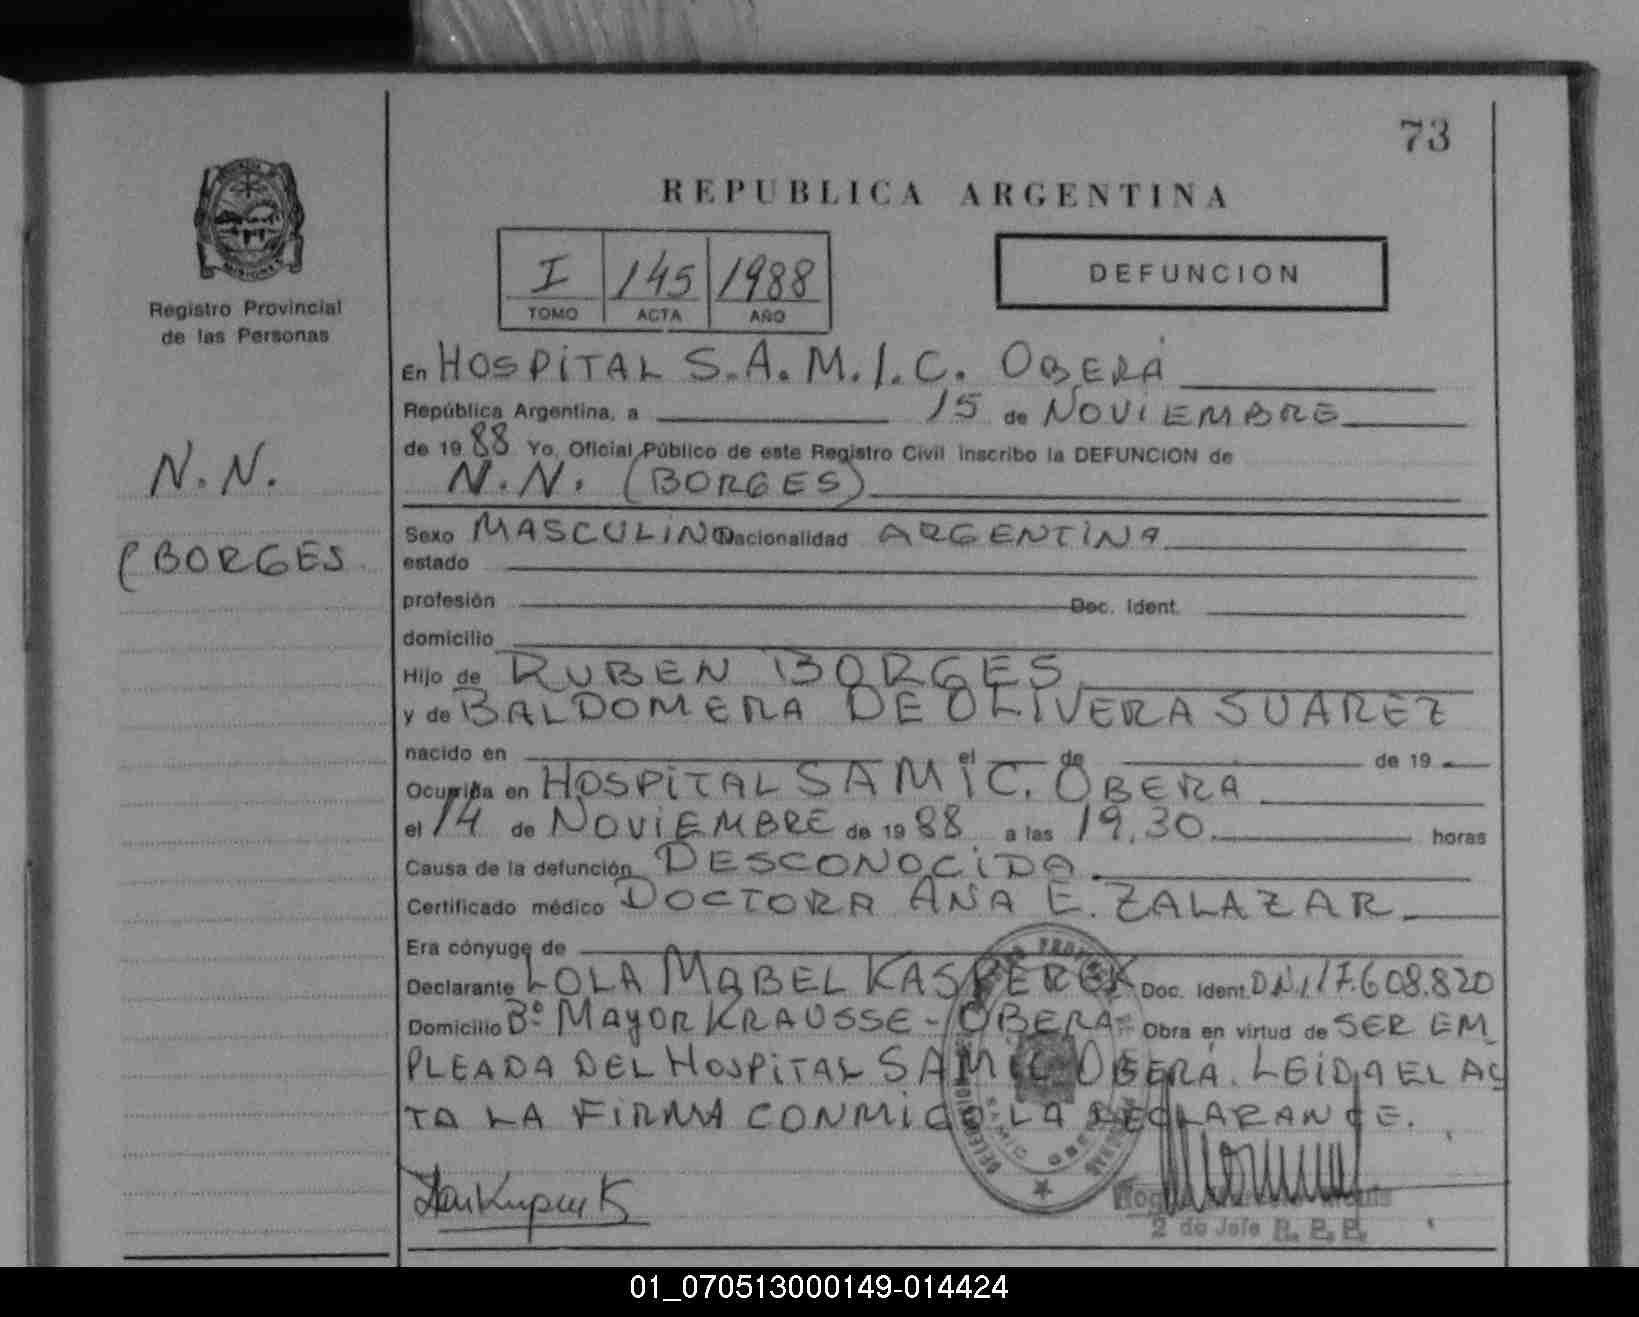 73
REPUBLICA ARGENTINA
I 145 1988
TOMO ACTA AÑO
DEFUNCION
MISIONES
Registro Provincial
de las Personas
N.N.
(BORGES
En HOSPITAL S.A.M.I.C. OBERÁ
República Argentina, a 15 de NOVIEMBRE
de 1988 Yo, Oficial Público de este Registro Civil inscribo la DEFUNCION de
N.N. (BORGES)
Sexo MASCULINO Nacionalidad ARGENTINA
estado
profesión Doc. Ident.
domicilio
Hijo de RUBEN BORGES
y de BALDOMERA DE OLIVERA SUAREZ
nacido en el de de 19
Ocurrida en HOSPITAL SAMIC. OBERA
el 14 de NOVIEMBRE de 1988 a las 19,30 horas
Causa de la defunción DESCONOCIDA
Certificado médico DOCTORA ANA E. ZALAZAR
Era cónyuge de
Declarante LOLA MABEL KASPEREK Doc. Ident. DNI 17.608.820
Domicilio Bº MAYOR KRAUSSE - OBERA Obra en virtud de SER EM
PLEADA DEL HOSPITAL SAMIC OBERÁ. LEIDA EL AC
TA LA FIRMA CONMIGO LA DECLARANTE.
2 do Jefe R. P. P.
01_070513000149-014424